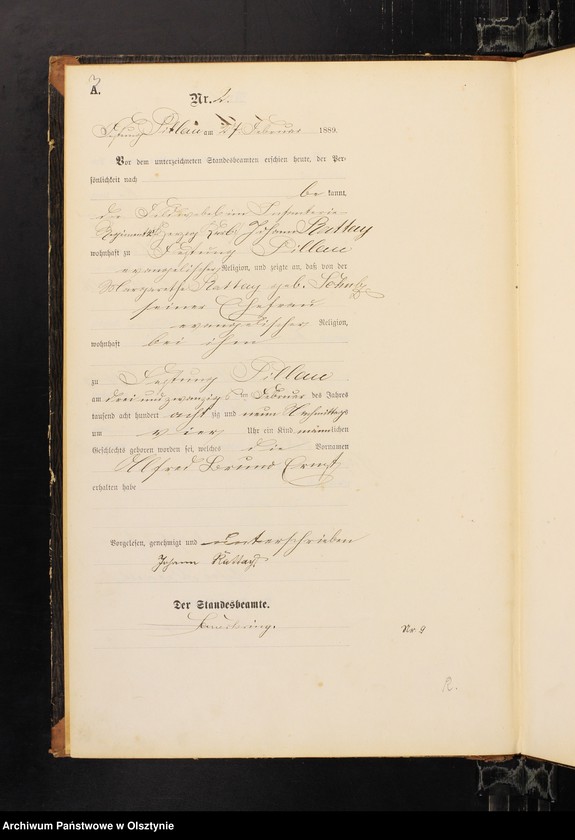 A.
Nr. 2.
Festung Pillau am 27 Februar 1889.
Vor dem unterzeichneten Standesbeamten erschien heute, der Per-
sönlichkeit nach
be kannt,
Feldwebel im Infanterie-
Regiment Herzog Johann Kattay
wohnhaft zu Festung Pillau
evangelischer Religion, und zeigte an, daß von der
Margarethe Kattay geb. Schulz
seiner Ehefrau
evangelischer Religion,
wohnhaft bei ihm
zu Festung Pillau
am drei und zwanzigsten Februar des Jahres
tausend acht hundert acht zig und neun Nachmittags
um vier Uhr ein Kind männlichen
Geschlechts geboren worden sei, welches die Vornamen
Alfred Bruno Ernst
erhalten habe
Vorgelesen, genehmigt und unterschrieben
Johann Kattay.
Der Standesbeamte.
Nr. 9
Archiwum Państwowe w Olsztynie